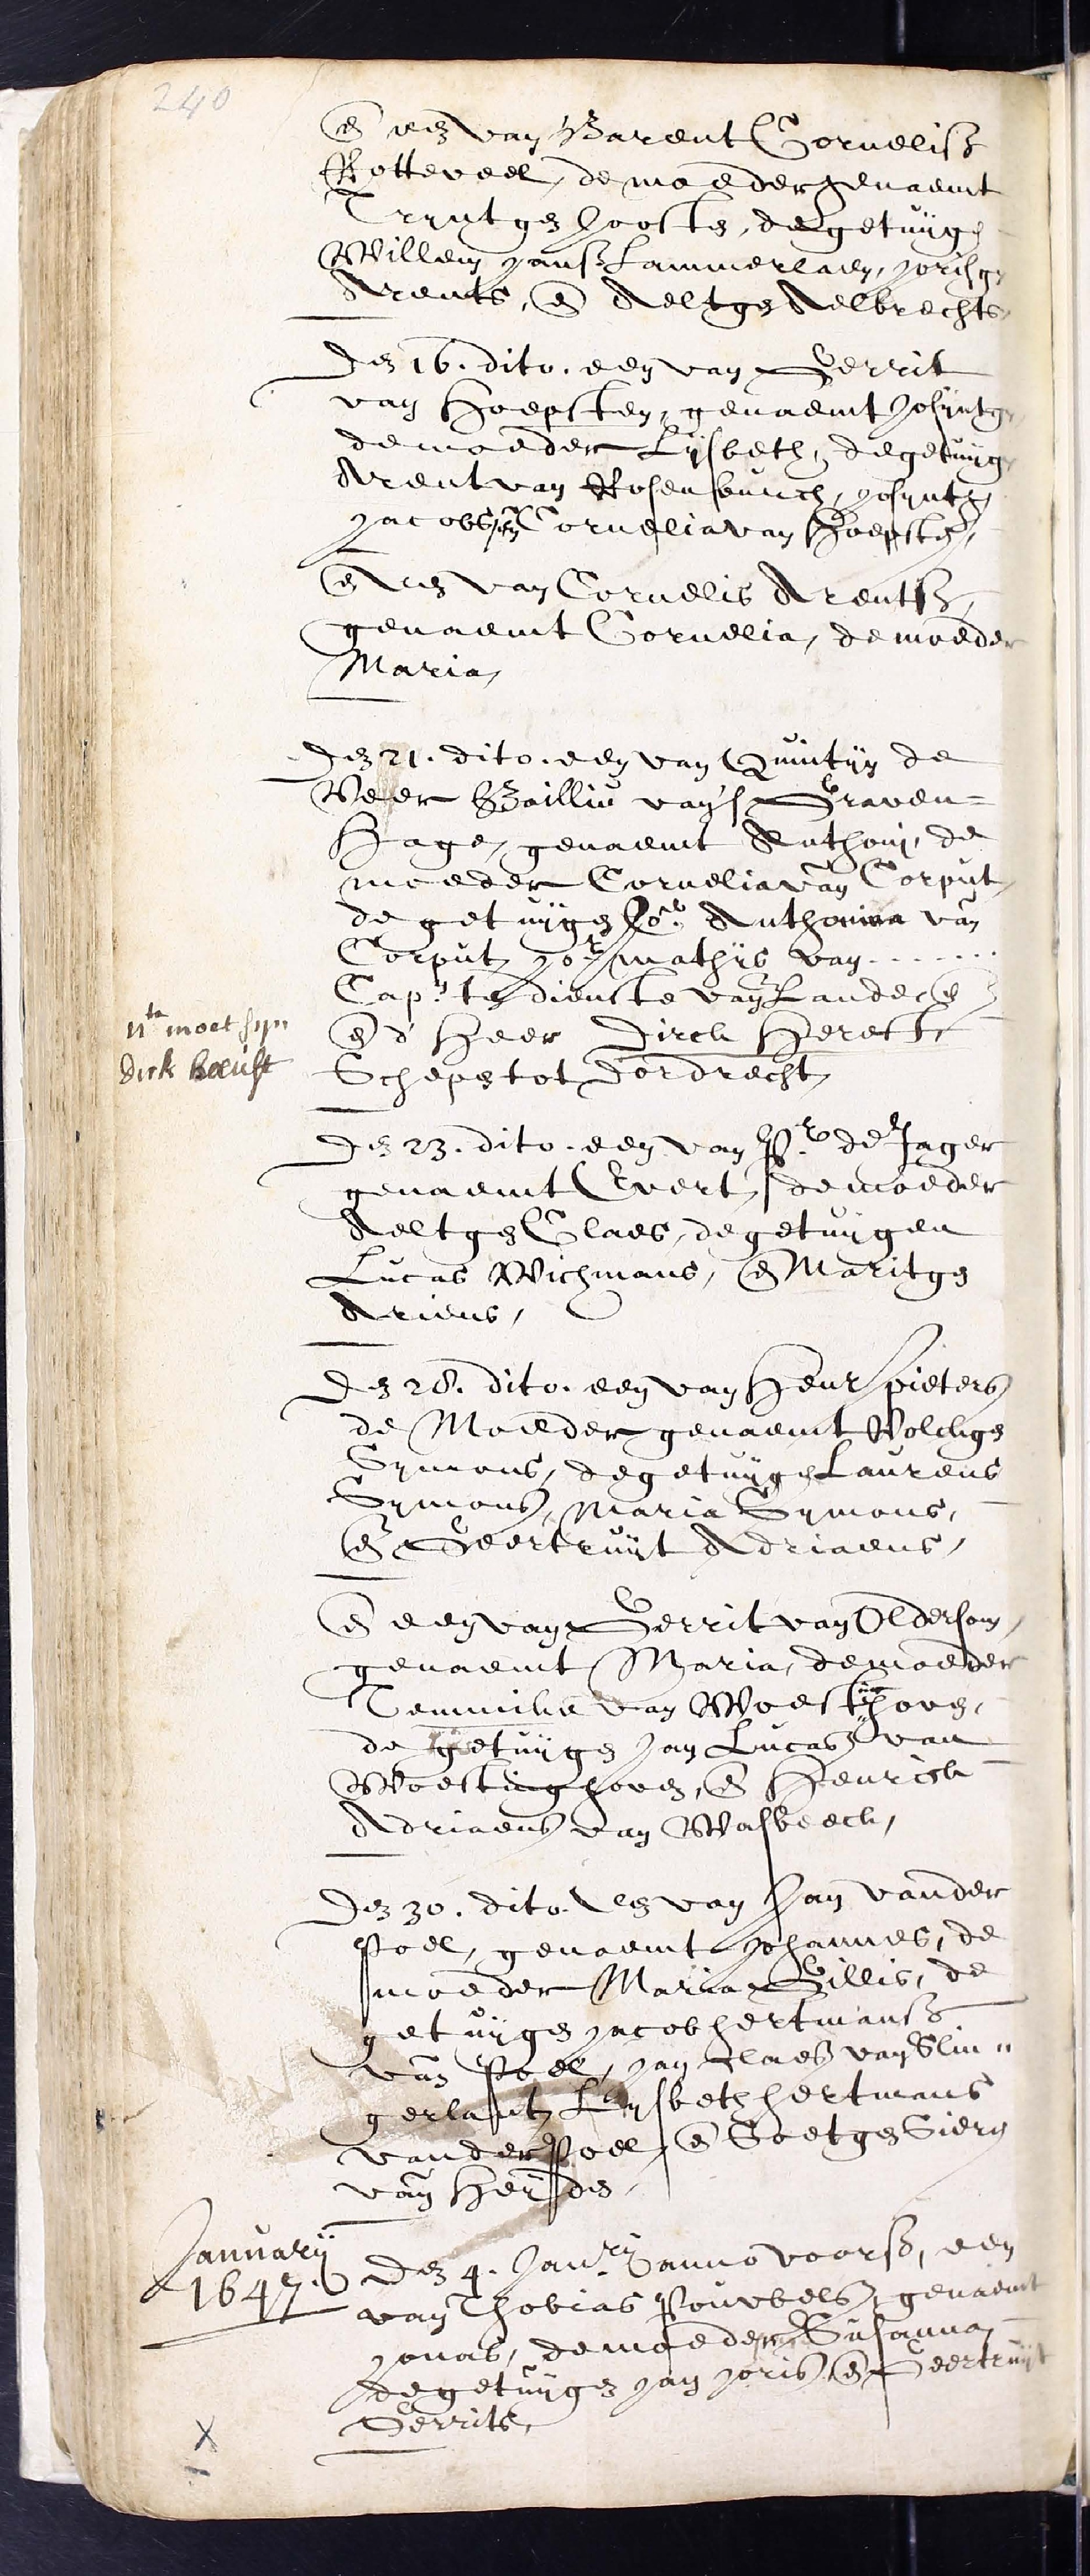 240
en een van Barent Cornelisz
Rotteveel, de moeder genaemt
Trijntgen Joosten, de getuijgen
Willem Jansz Lammerlaen, Jorisgen
Arents, en Aeltgen Aelbrechts,
Den 16. dito. een van Gerrit
van Hoepsten, genaemt Josijntgen
de moeder Lijsbeth, de getuijgen
Arent van Rosenburch, Josijntgen
Jacobs, en Cornelia van Hoepsten,
en een van Cornelis Arentsz,
genaemt Cornelia, de moeder
Maria,
Den 21. dito. een van Quintijn de
Veer Bailliu van 's Graven=
Hage, genaemt Anthonij, de
moeder Cornelia van Corput,
de getuijgen Jor. Anthonina van
Corput, Jor. Mathijs van .......
Capn. ten dienste van Lande, en
en d' Heer Dirck
Schepen tot Dordrecht,
Nta moet sijn
Dirk Boeuft
Den 23. dito. een van Pr. de Jager
genaemt Evert, de moeder
Aeltgen Claes, de getuijgen
Lucas Wichmans, en Maritgen
Ariens,
Den 28. dito. een van Henr Pieters
de Moeder genaemt Volckgen
Sijmons, de getuijgen Laurens
Sijmons, Maria Sijmons,
en Geertruijt Adriaens,
en een van Gerrit van Oldersom,
genaemt Maria, de moeder
Temmike van Woestinghoven,
de getuijgen Jan Lucas van
Woestinghoven, en Henrick
Adriaens van Wasbeeck,
Den 30. dito. een van Jan vander
Poel, genaemt Johannes, de
moeder Maria Gillis, de
getuijgen Jacob Hertmansz
van Poel, Jan Claes van Slin"
gerlant, Lijsbeth Hertmans
vander Poel, en Soetgen
van Heijden,
Januarij
1647.
Den 4. Janrij anno voorsz, een
van Thobias genaemt
Jonas, de moeder Susanna,
de getuijgen Jan Joris, en Geertruijt
Gerrits,
X